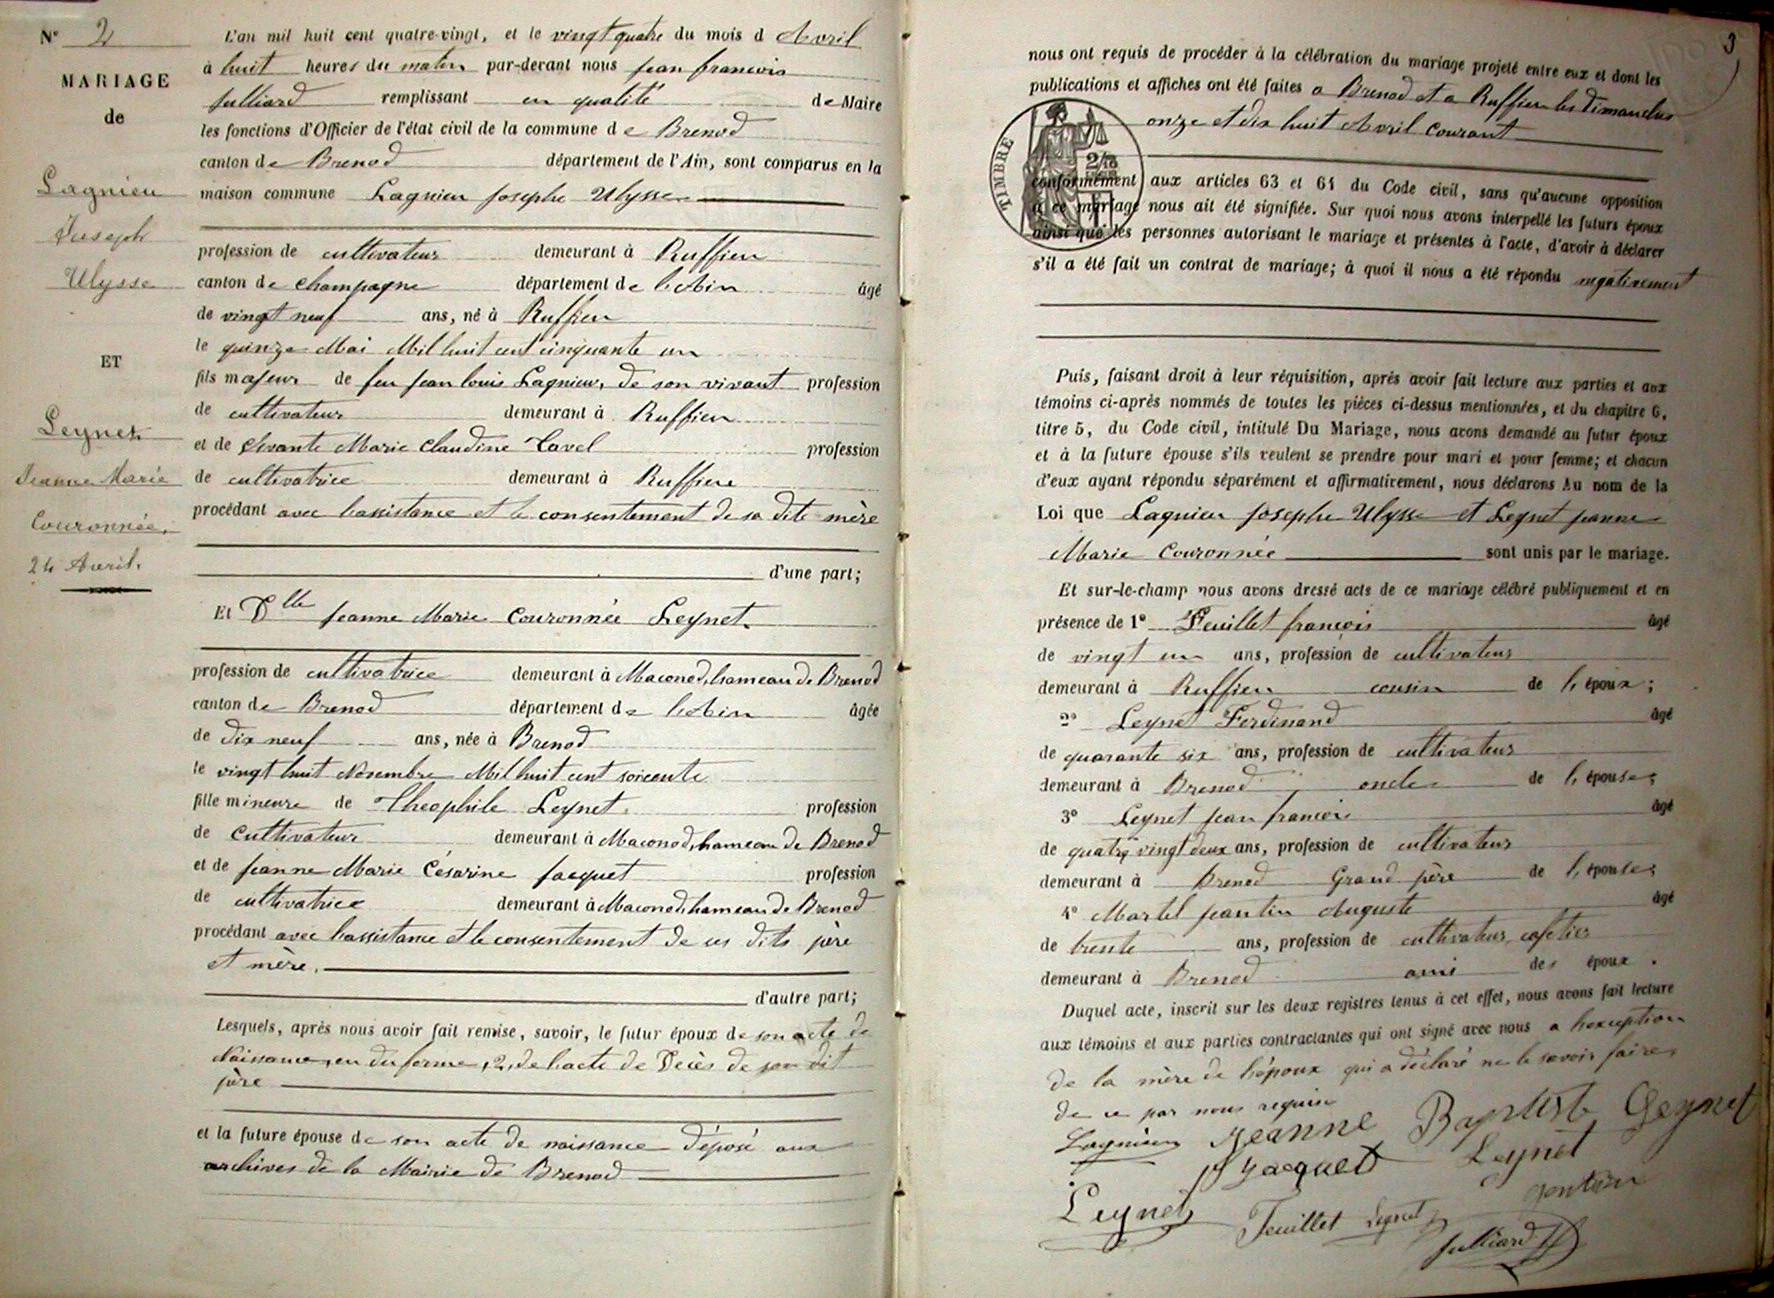 N° 2
MARIAGE
de
Lagnieu
Joseph
Ulysse
ET
Leynet
Jeanne Marie
Couronnée,
24 Avril.
L'an mil huit cent quatre-vingt, et le vingt quatre du mois d Avril
à huit heures du matin par-devant nous Jean francois
Julliard remplissant en qualité de Maire
les fonctions d'Officier de l'état civil de la commune de Brenod
canton de Brenod département de l'Ain, sont comparus en la
maison commune Lagnieu Josephe Ulysse
profession de cultivateur demeurant à Ruffieu
canton de Champagne département de l'Ain âgé
de vingt neuf ans, né à Ruffieu
le quinze Mai Mil huit cent cinquante un
fils majeur de feu Jean Louis Lagnieu, de son vivant profession
de cultivateur demeurant à Ruffieu
et de vivante Marie Claudine Tavel profession
de cultivatrice demeurant à Ruffieu
procédant avec l'assistance et le consentement de sa dite mère
d'une part;
Et Dlle Jeanne Marie Couronnée Leynet
profession de cultivatrice demeurant à Maconod, hameau de Brenod
canton de Brenod département de l'Ain âgée
de dix neuf ans, née à Brenod
le vingt huit Novembre Mil huit cent soixante
fille mineure de Théophile Leynet profession
de cultivateur demeurant à Maconod, hameau de Brenod
et de Jeanne Marie Césarine Jacquet profession
de cultivatrice demeurant à Maconod, hameau de Brenod
procédant avec l'assistance et le consentement de ses dits père
et mère.
d'autre part;
Lesquels, après nous avoir fait remise, savoir, le futur époux de son acte de
Naissance, en du forme, 2, de l'acte de Décès de son dit
père
et la future épouse de son acte de naissance déposé aux
archives de la Mairie de Brenod
3
nous ont requis de procéder à la célébration du mariage projeté entre eux et dont les
publications et affiches ont été faites a Brenod et a Ruffieu les dimanches
onze et dix huit Avril courant
TIMBRE
conformément aux articles 63 et 64 du Code civil, sans qu'aucune opposition
à ce mariage nous ait été signifiée. Sur quoi nous avons interpellé les futurs époux
ainsi que les personnes autorisant le mariage et présentes à l'acte, d'avoir à déclarer
s'il a été fait un contrat de mariage; à quoi il nous a été répondu négativement
Puis, faisant droit à leur réquisition, après avoir fait lecture aux parties et aux
témoins ci-après nommés de toutes les pièces ci-dessus mentionnées, et du chapitre 6,
titre 5, du Code civil, intitulé Du Mariage, nous avons demandé au futur époux
et à la future épouse s'ils veulent se prendre pour mari et pour femme; et chacun
d'eux ayant répondu séparément et affirmativement, nous déclarons Au nom de la
Loi que Lagnieu Josephe Ulysse et Leynet Jeanne
Marie Couronnée sont unis par le mariage.
Et sur-le-champ nous avons dressé acte de ce mariage célébré publiquement et en
présence de 1° Feuillet francois âgé
de vingt un ans, profession de cultivateur
demeurant à Ruffieu cousin de l'époux;
2° Leynet Ferdinand âgé
de quarante six ans, profession de cultivateur
demeurant à Brenod oncle de l'épouse;
3° Leynet Jean francois âgé
de quatre vingt deux ans, profession de cultivateur
demeurant à Brenod Grand père de l'épouse;
4° Martel Jeantin Auguste âgé
de trente ans, profession de cultivateur, cafetier
demeurant à Brenod ami des époux.
Duquel acte, inscrit sur les deux registres tenus à cet effet, nous avons fait lecture
aux témoins et aux parties contractantes qui ont signé avec nous a l'exception
de la mère de l'époux qui a déclaré ne le savoir faire,
de ce par nous requise
Lagnieu Jeanne Baptiste Leynet
Jacquet Leynet
Leynet Feuillet Leynet Jantin
Julliard